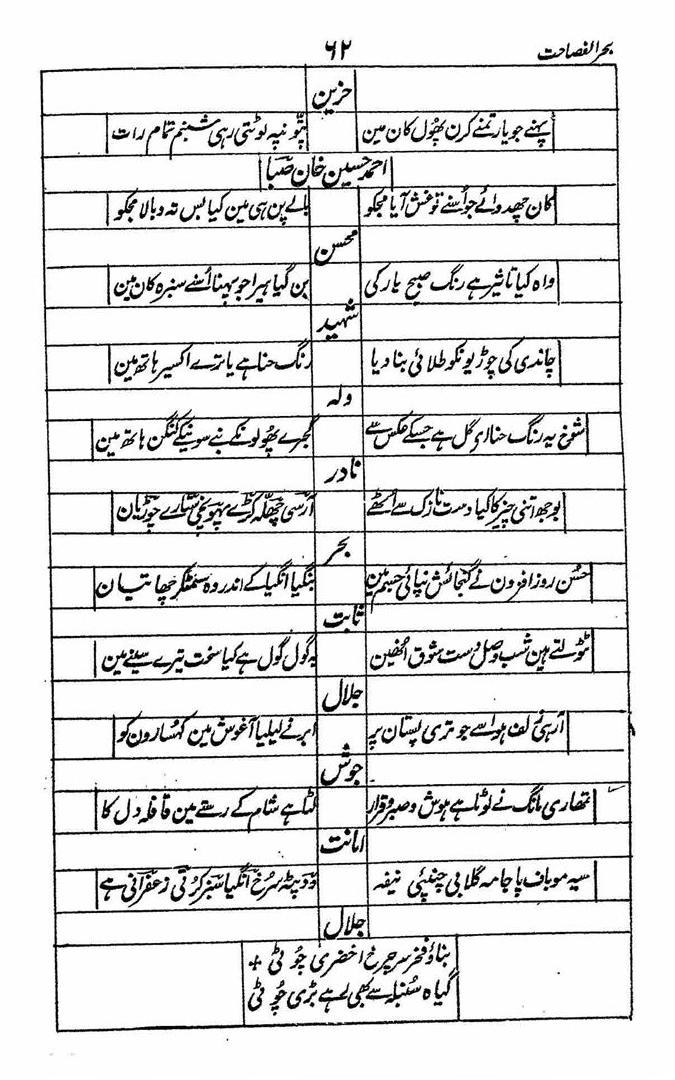 بحر الفصاحت
۶۲
حزین
پہنے جو یار تمنے کرن پھول کان مین
پتّونپہ لوٹتی رہی شبنم تمام رات
احمد حسین خان صبا
کان چھدوائے جو اُسنے تو غش آیا مجکو
بالے پن ہی مین کیا بس تہ و بالا مجکو
محسن
واہ کیا تاثیر ہے رنگ صبیح یار کی
بن گیا ہیرا جو پہنا اُسنے سبزہ کان مین
شہید
چاندی کی چوڑیونکو طلائی بنا دیا
رنگ حنا ہے یا ترے اکسیر ہاتھ مین
ولہ
شوخ یہ رنگ حنا ای گل ہے جسکے عکس سے
گجرے پھولونکے بنے سونیکے کنگن ہاتھ مین
نادر
بوجھ اتنی چیز کا کیا دست نازک سے اُٹھے
آرسی چھلّہ کڑے پہونچی ستارے چوڑیان
بحر
حُسن روز افزون نے گنجائش نپائی جسم مین
بنگیا انگیا کے اندر وہ سمٹکر چھاتیان
ثابت
ٹٹولتے ہین شب وصل دست شوق اُنھین
یہ گول گول ہے کیا سخت تیرے سینے مین
جلال
آ رہی زلف ہوا سے جو تری پستان پر
ابر نے لیلیا آغوش مین کہسارون کو
جوش
تمھاری مانگ نے لوٹا ہے ہوش و صبر و قرار
لٹا ہے شام کے رستے مین قافلہ دل کا
امانت
سیہ موباف پاجامہ گلابی چنپئی نیفہ
دوپٹہ سرخ انگیا سبز کُرتی زعفرانی ہے
جلال
بناؤ فخر سر چرخ اخضری چوٹی +
گیاہ سُنبلہ سے بھی لے ہے بڑی چوٹی